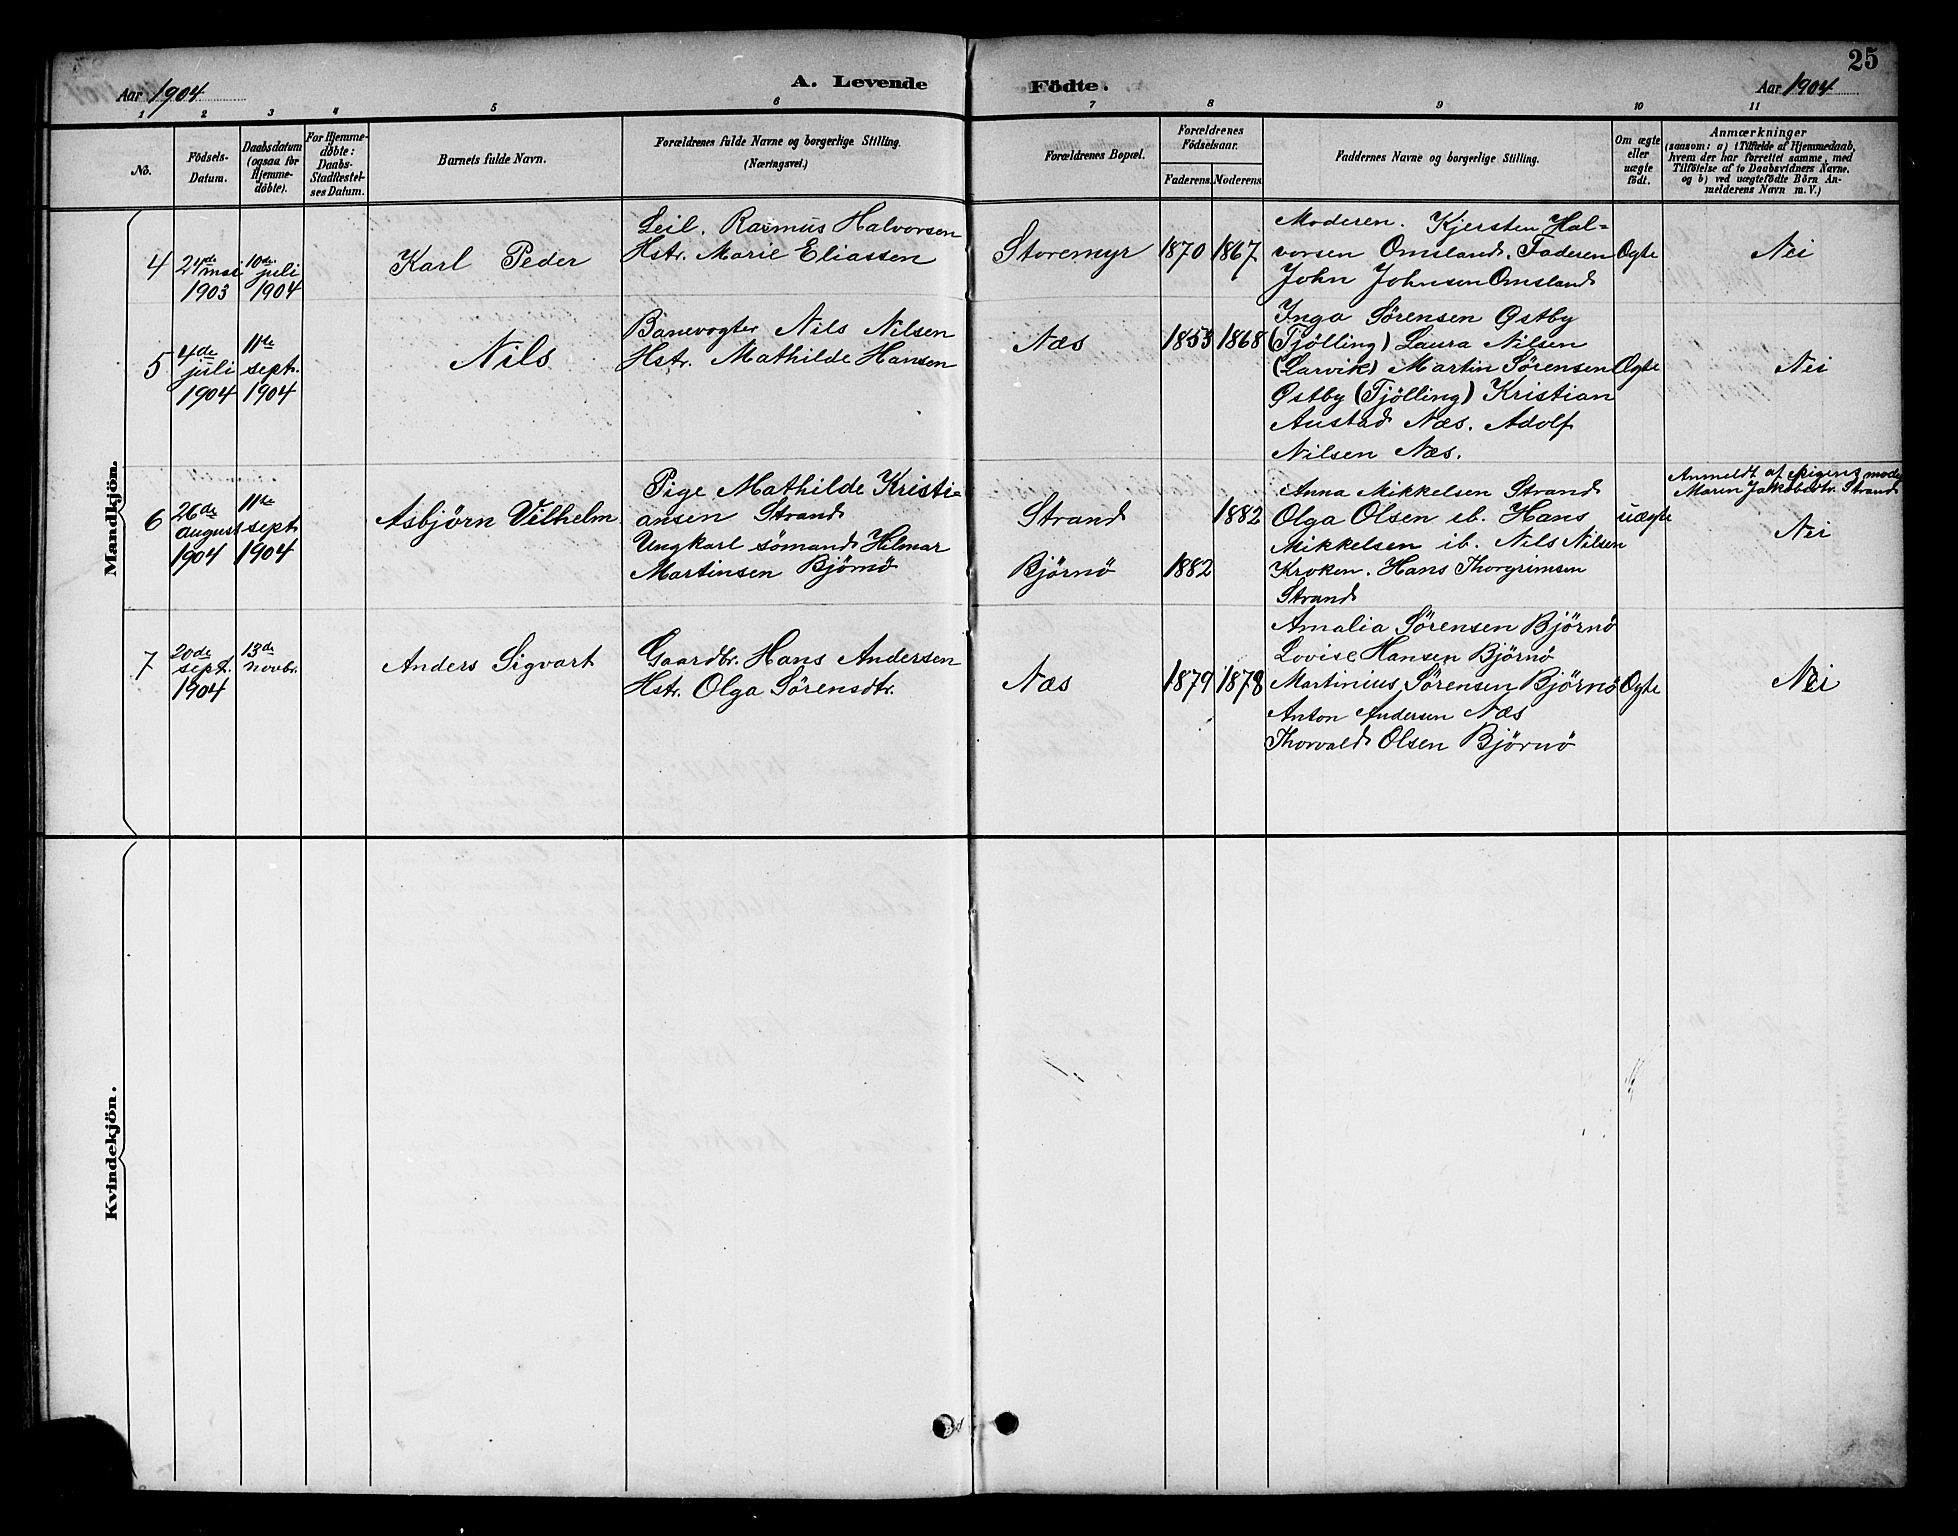 25
Aar 1904
A. Levende Födte.
Aar 1904
1 2 3 4 5 6 7 8 9 10 11
No.
Födsels-
Datum.
Daabsdatum
(ogsaa for
Hjemme-
döbte).
For Hjemme-
döbte:
Daabs-
Stadfæstel-
ses Datum.
Barnets fulde Navn.
Forældrenes fulde Navne og borgerlige Stilling.
(Næringsvei.)
Forældrenes Bopæl.
Forældrenes
Födselsaar.
Faderens. Moderens.
Faddernes Navne og borgerlige Stilling.
Om ægte
eller
uægte
födt.
Anmærkninger
(saasom: a) i Tilfælde af Hjemmedaab,
hvem der har forrettet samme, med
Tilföielse af to Daabsvidners Navne.
og b) ved uægtefödte Börn An-
melderens Navn m. V.)
Mandkjön.
4
24de
mai
1903
10de
juli
1904
Karl Peder
Leil. Rasmus Halvorsen
Hstr. Marie Eliassen
Storemyr
1870 1867
Moderen. Kjersten Hal-
vorsen Omsland. Faderen
John Johnsen Omsland
Ægte
Nei
5
4de
juli
1904
11te
sept.
1904
Nils
Banevogter Nils Nilsen
Hstr. Mathilde Hansen
Næs
1853 1868
Inga Sørensen Østby
(Tjölling) Laura Nilsen
(Larvik) Martin Sørensen
Østby (Tjölling) Kristian
Austad Næs. Adolf
Nilsen Næs.
Ægte
Nei
6
26de
august
1904
11te
sept
1904
Asbjörn Vilhelm
Pige Mathilde Kristi-
ansen Strand
Ungkarl sömand Hilmar
Martinsen Bjömö
Strand
Björnö
1882
1882
Anna Mikkelsen Strand
Olga Olsen ib. Hans
Mikkelsen ib. Nils Nilsen
Kroken. Hans Thorgrimsen
Strand
uægte
Anmeldt af pigens moder
Maren Jakobsdtr. Strand
Nei
7
20de
sept.
1904
13de
novbr.
Anders Sigvart
Gaardbr. Hans Andersen
Hstr. Olga Sörensdtr.
Næs
1879 1878
Amalia Sørensen Björnö
Lovise Hansen Björnö
Martinius Sørensen Björnö
Anton Andersen Næs
Thorvald Olsen Björnö
Ægte
Nei
Kvindekjön.